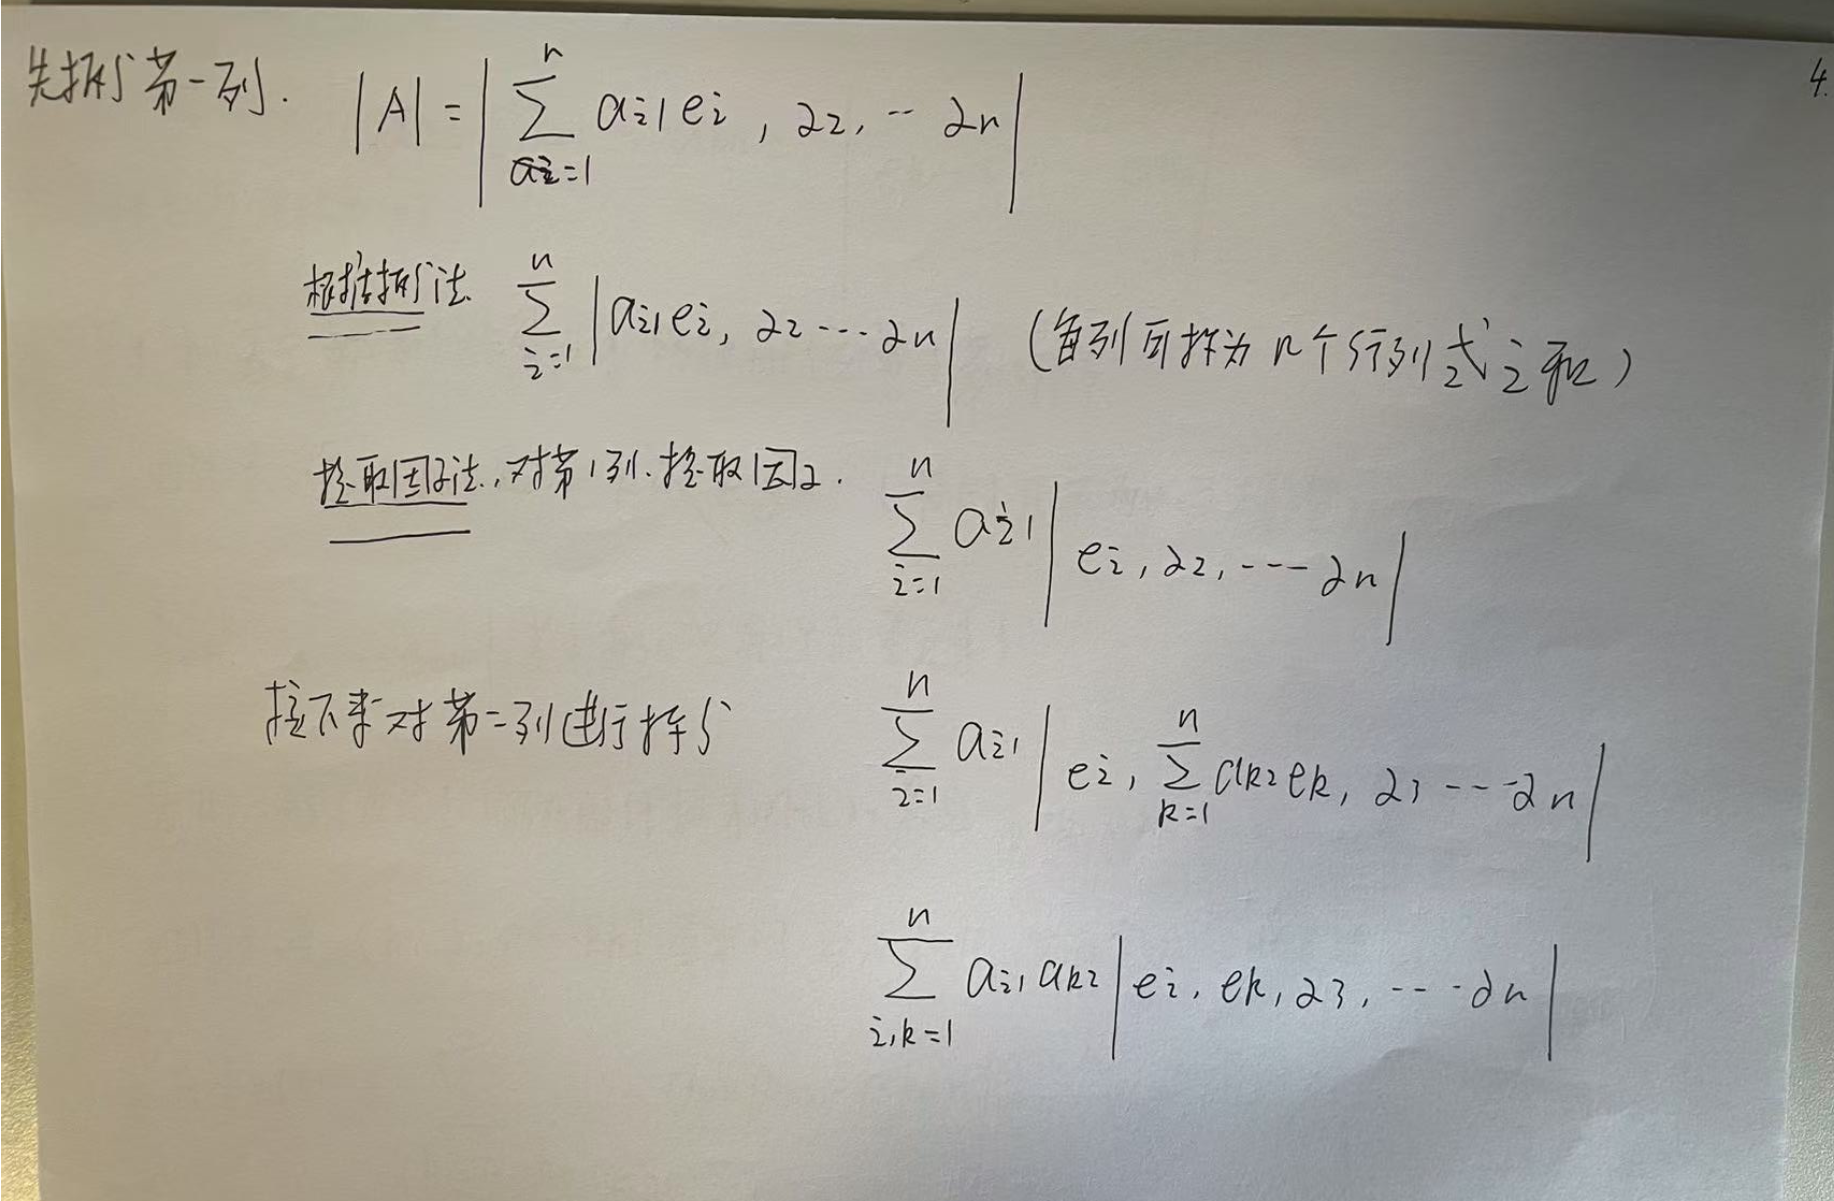 4.
先拆第一列. |A| = | ∑_{i=1}^{n} a_{i1} e_i , α_2, … α_n |
根据拆法 ∑_{i=1}^{n} | a_{i1} e_i, α_2 … α_n | (每列可拆为 n 个行列式之和)
提取因子法, 对第1列. 提取因子. ∑_{i=1}^{n} a_{i1} | e_i, α_2, … α_n |
接下来对第二列进行拆 ∑_{i=1}^{n} a_{i1} | e_i, ∑_{k=1}^{n} a_{k2} e_k, α_3 … α_n |
∑_{i,k=1}^{n} a_{i1} a_{k2} | e_i, e_k, α_3, … α_n |